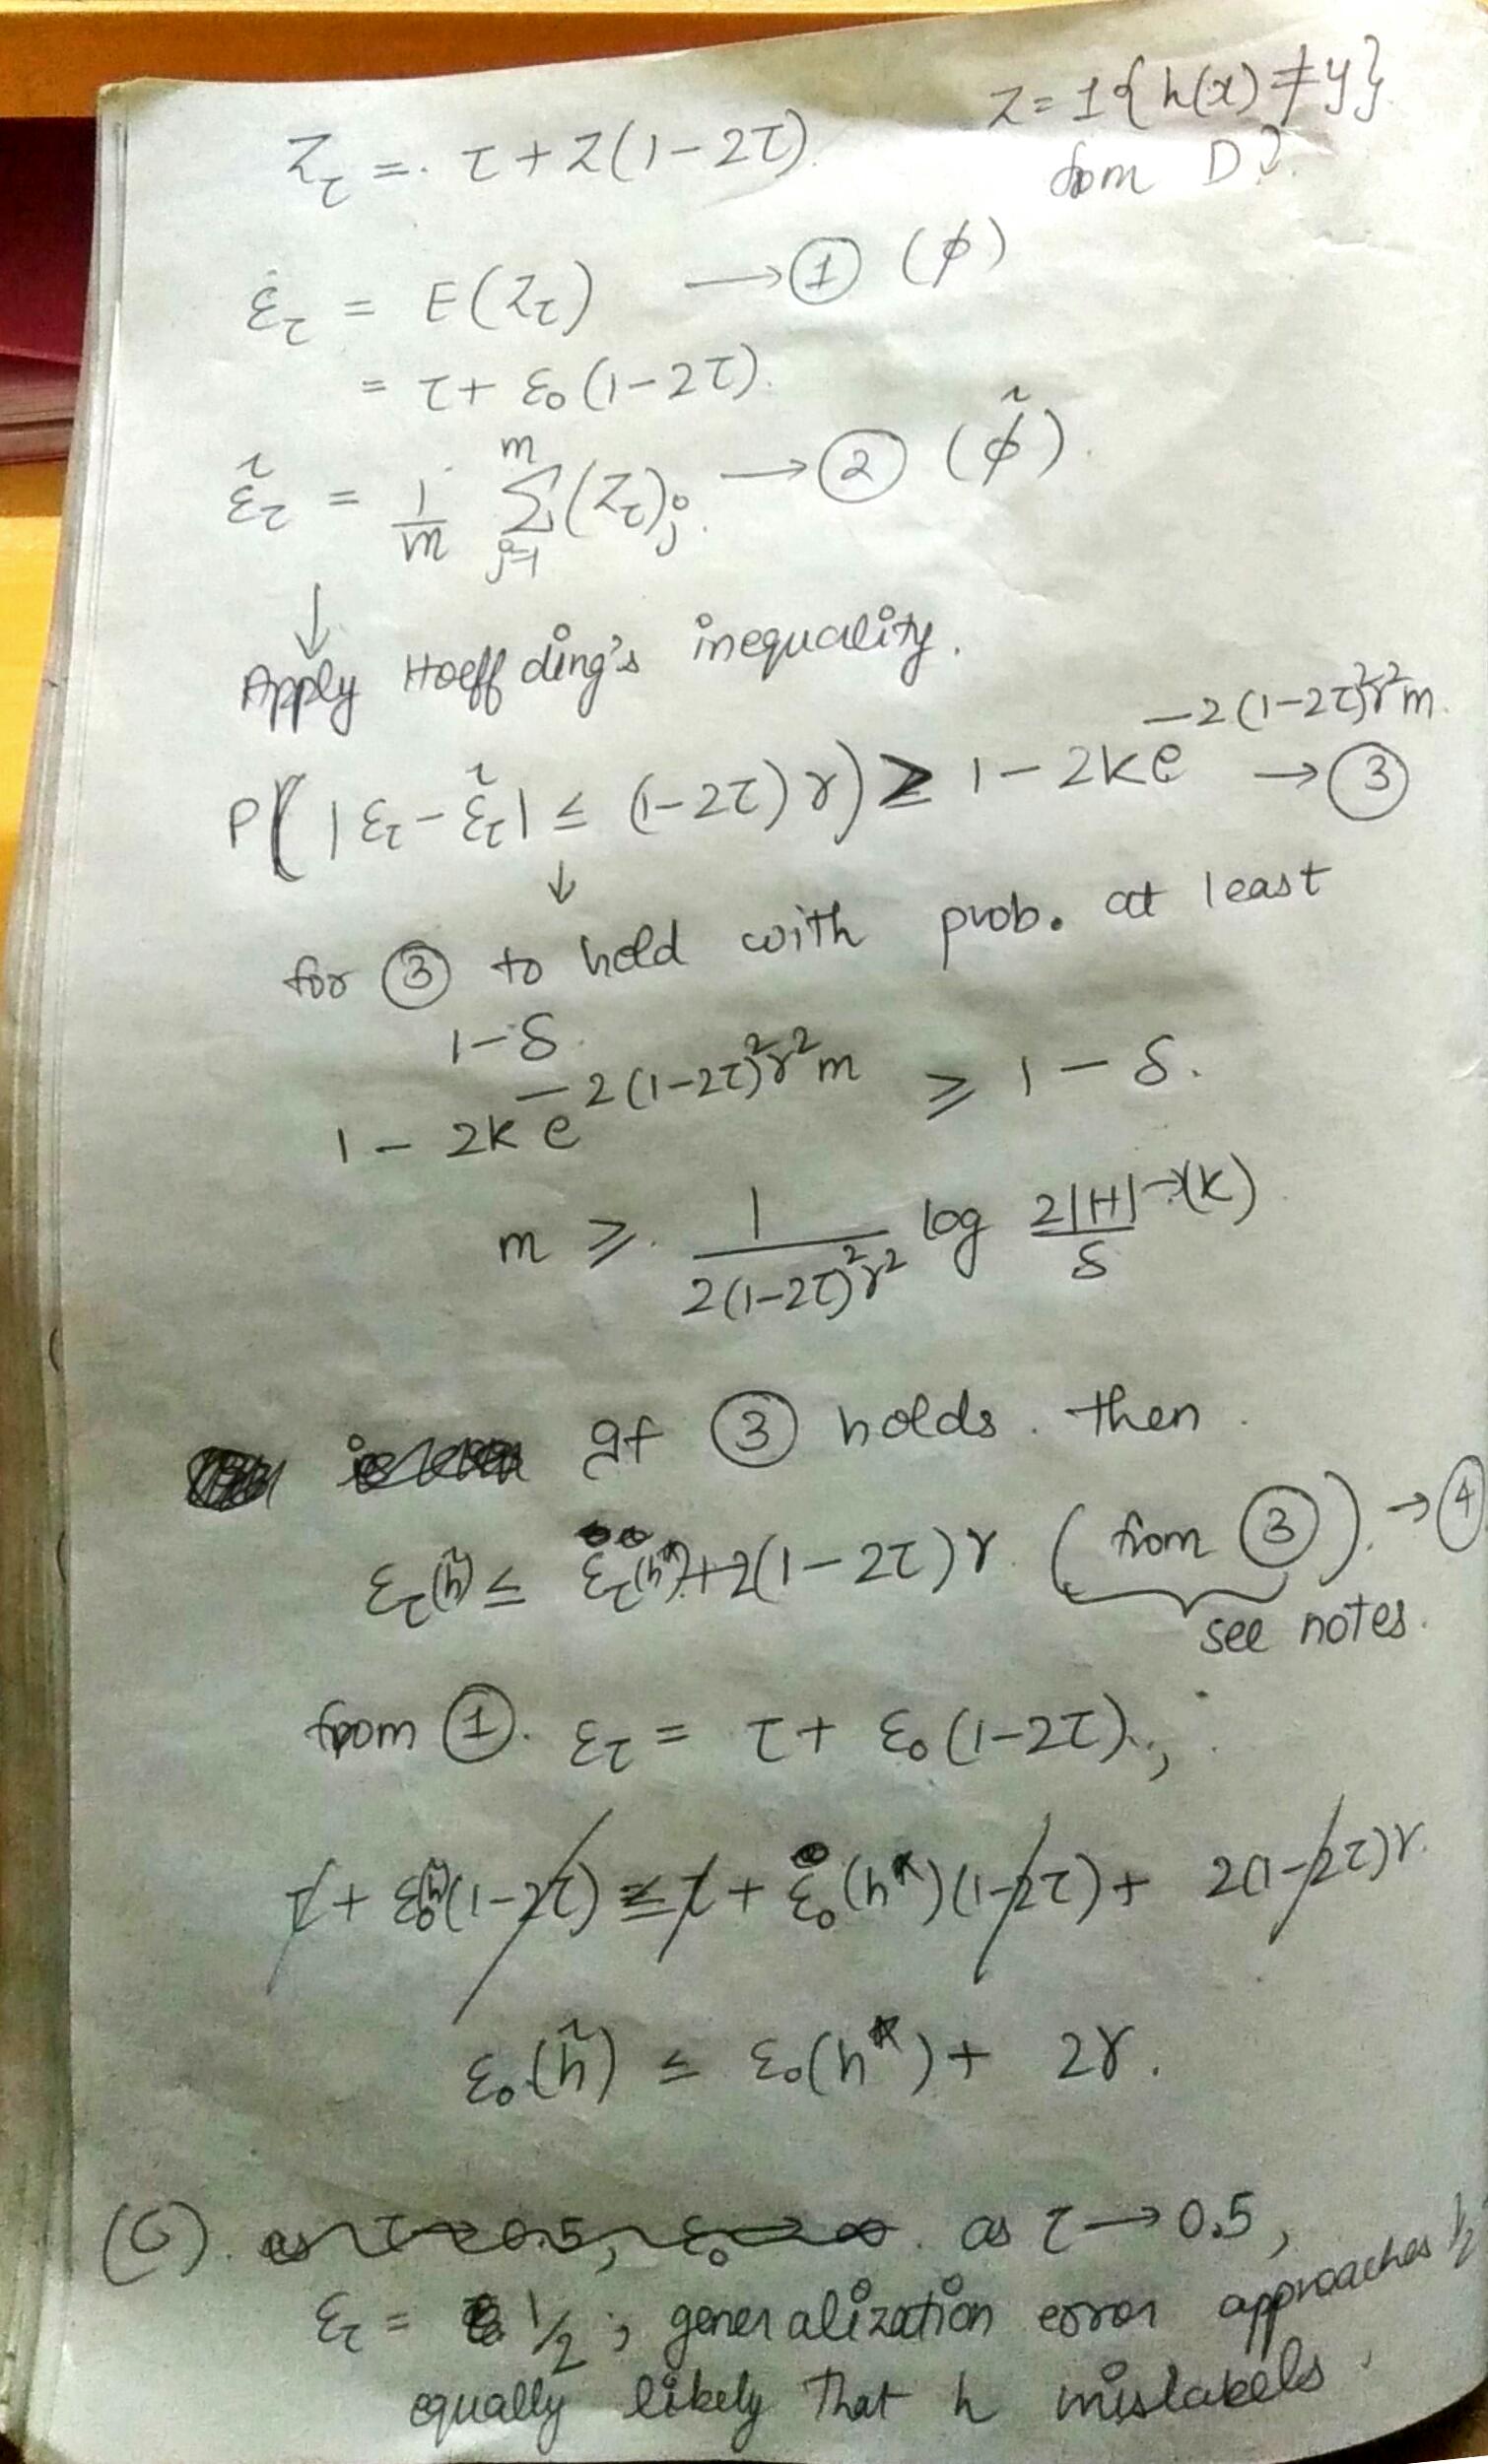 Z = 1{h(x) ≠ y}
Z_τ = τ + Z(1-2τ)
from D}.
ε_τ = E(Z_τ) → ① (ϕ)
= τ + ε₀(1-2τ).
ε̃_τ = 1/m Σ_{j=1}^{m} (Z_τ)_j. → ② (ϕ̃).
↓
Apply Hoeffding's inequality.
P(|ε_τ - ε̃_τ| ≤ (1-2τ)γ) ≥ 1 - 2ke^{-2(1-2τ)²γ²m} → ③
↓
for ③ to hold with prob. at least
1-δ.
1 - 2ke^{-2(1-2τ)²γ²m} ≥ 1 - δ.
m ≥ 1/(2(1-2τ)²γ²) log 2|H|→(k)/δ
If ③ holds. then
ε_τ(h̃) ≤ ε_τ(h*) + 2(1-2τ)γ. (from ③). → ④
see notes.
from ①. ε_τ = τ + ε₀(1-2τ).,
τ + ε₀(h̃)(1-2τ) ≤ τ + ε₀(h*)(1-2τ) + 2(1-2τ)γ.
ε₀(h̃) ≤ ε₀(h*) + 2γ.
(C). as τ→0.5, ε₀→∞. as τ → 0.5,
ε_τ = 1/2 ; generalization error approaches 1/2
equally likely that h mislabels.